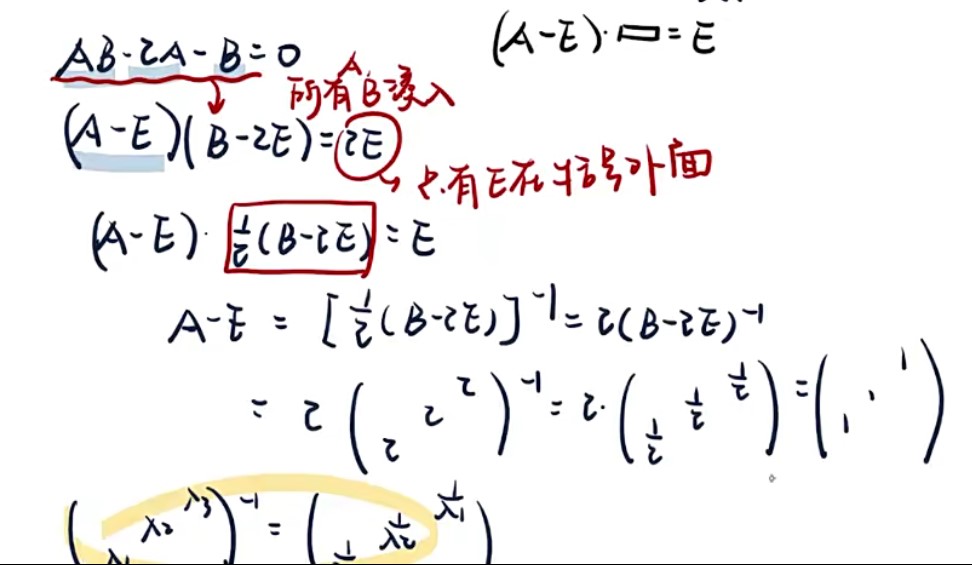 (A-E)·▭=E
AB-2A-B=0
所有A,B凑入
(A-E)(B-2E)=2E
只有E在括号外面
(A-E)·½(B-2E)=E
A-E = [½(B-2E)]⁻¹=2(B-2E)⁻¹
= 2(2 2 2)⁻¹=2·(½ ½ ½)=(1 1 1)
(λ1 λ2 λ3)⁻¹=(1/λ2 1/λ1)